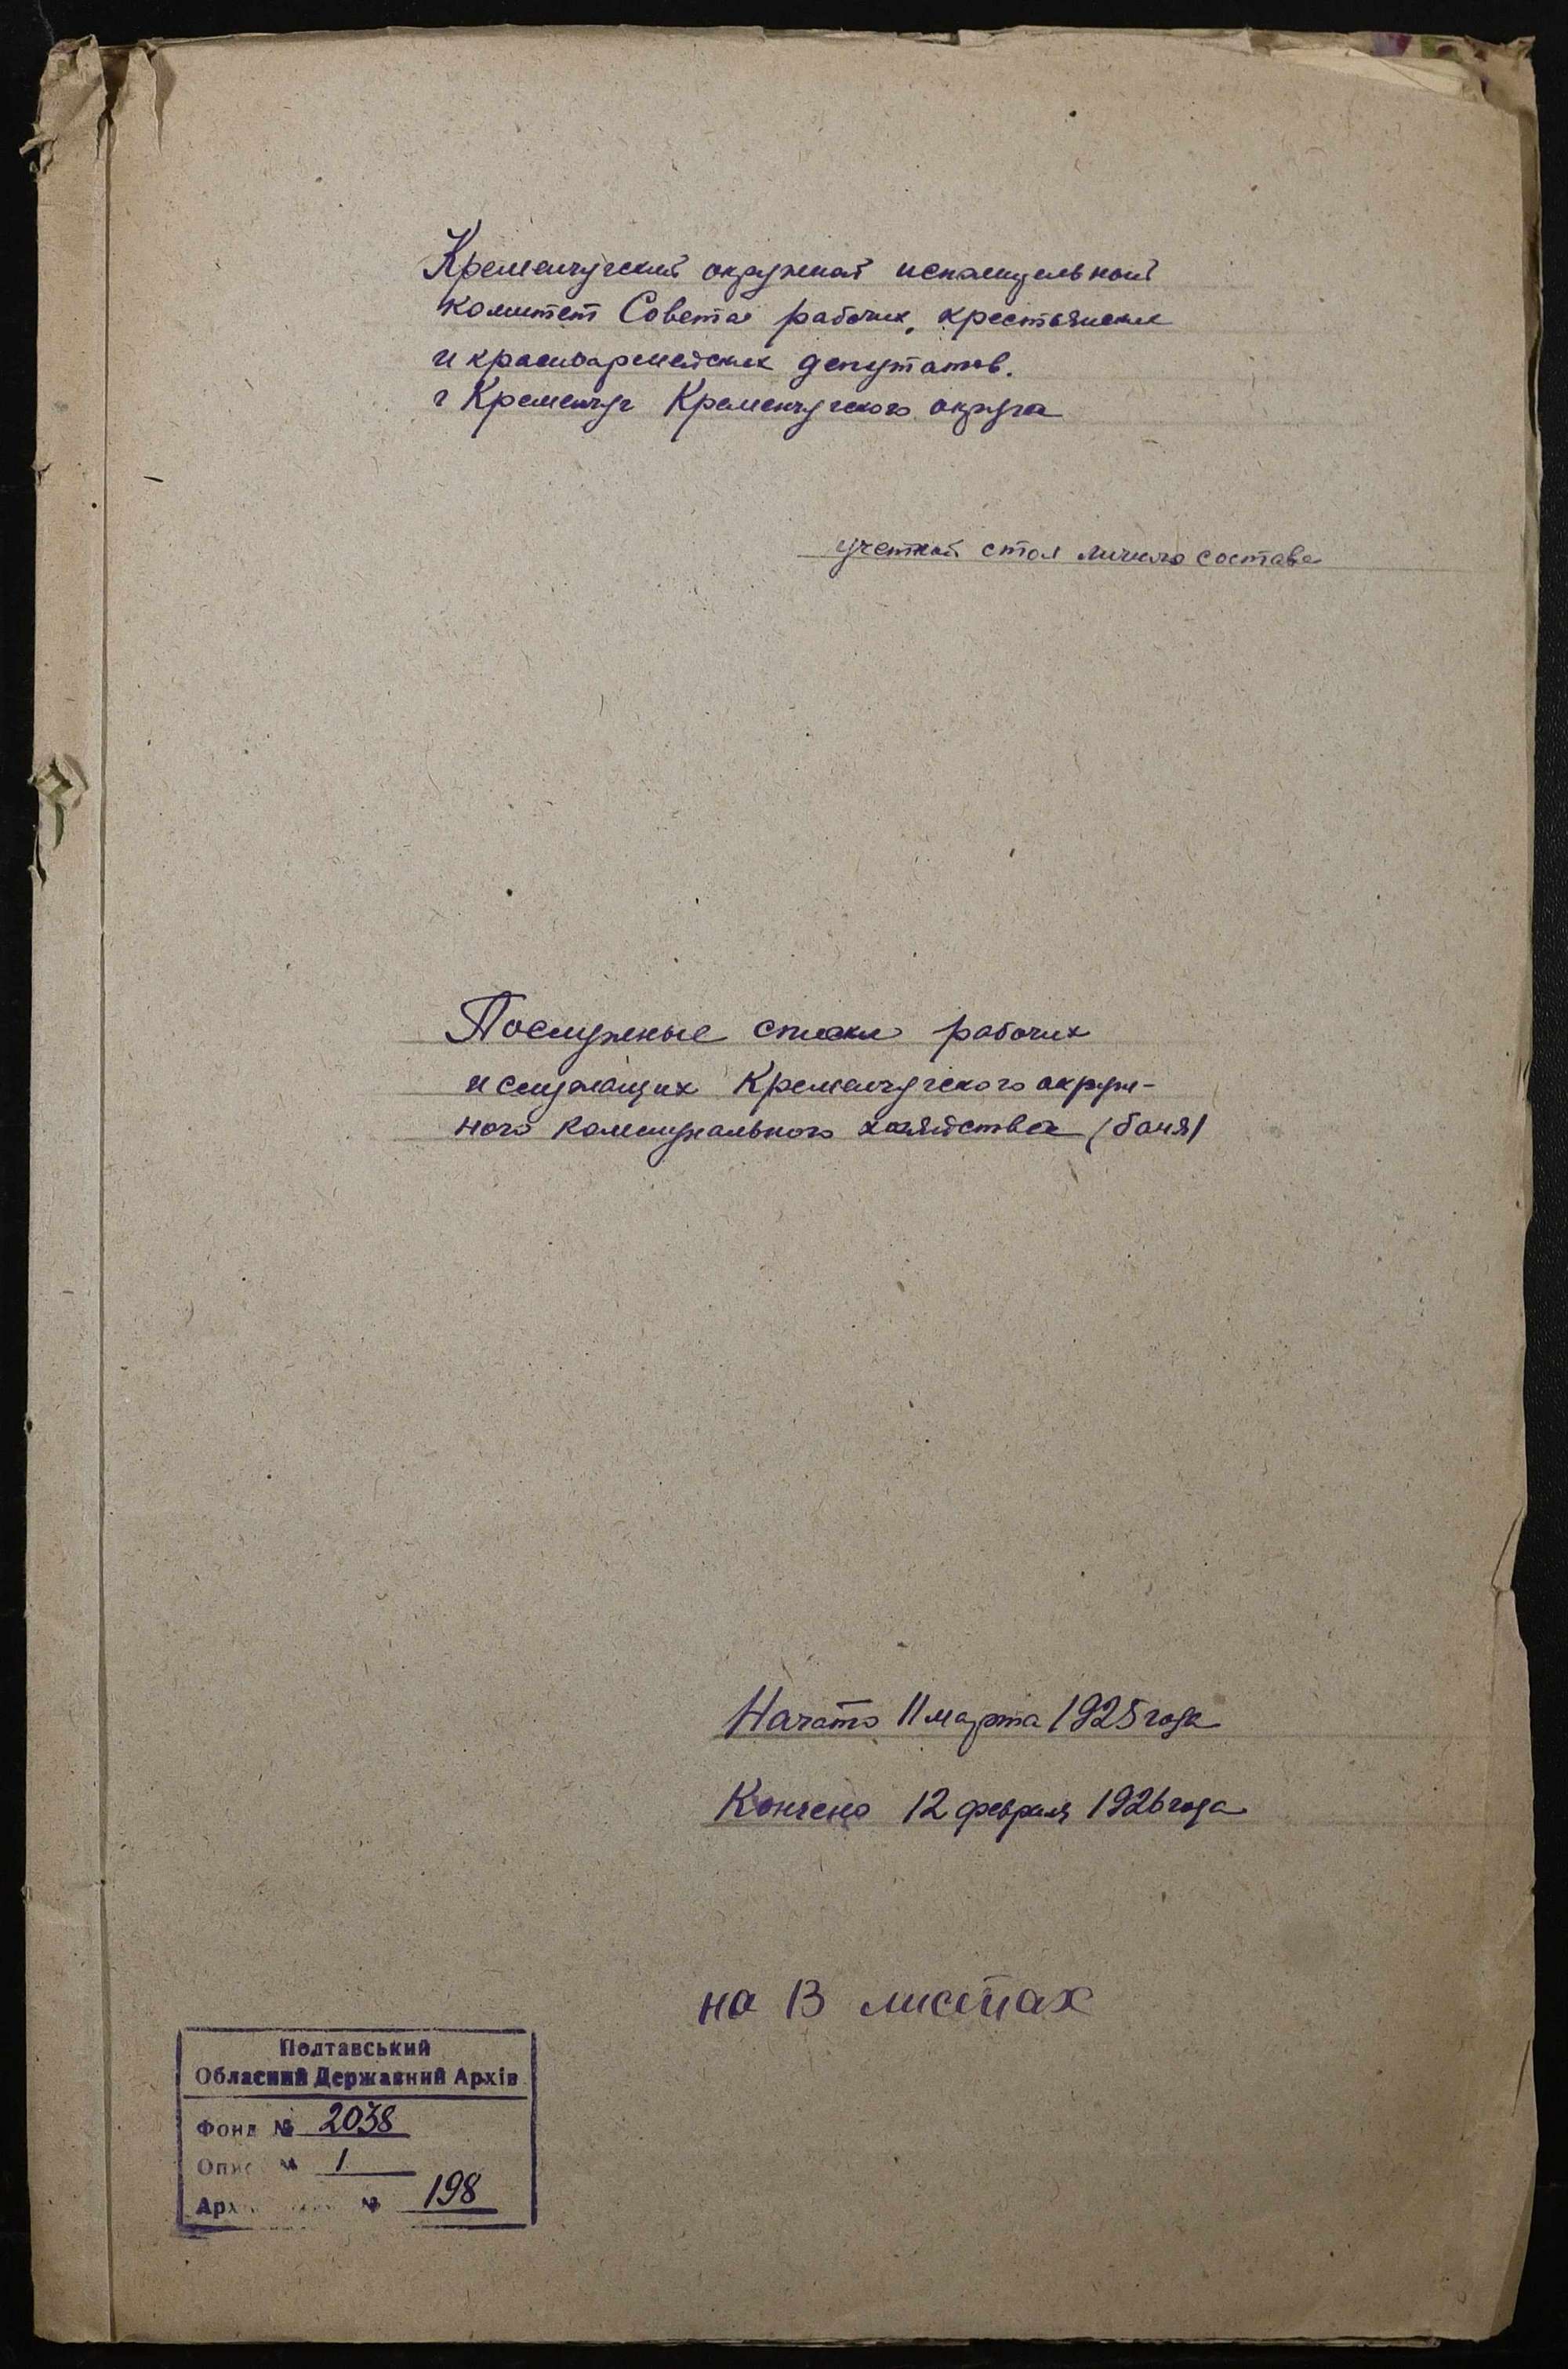 Кременчугский окружной исполнительный
комитет Совета рабочих, крестьянских
и красноармейских депутатов.
г Кременчуг Кременчугского округа
учетный стол личного состава
Послужные списки рабочих
и служащих Кременчугского окруж-
ного коммунального хозяйства (баня)
Начато 11 марта 1925 года
Кончено 12 февраля 1926 года
на 13 листах
Полтавський
Обласний Державний Архів
Фонд № 2038
Опис № 1
№ 198